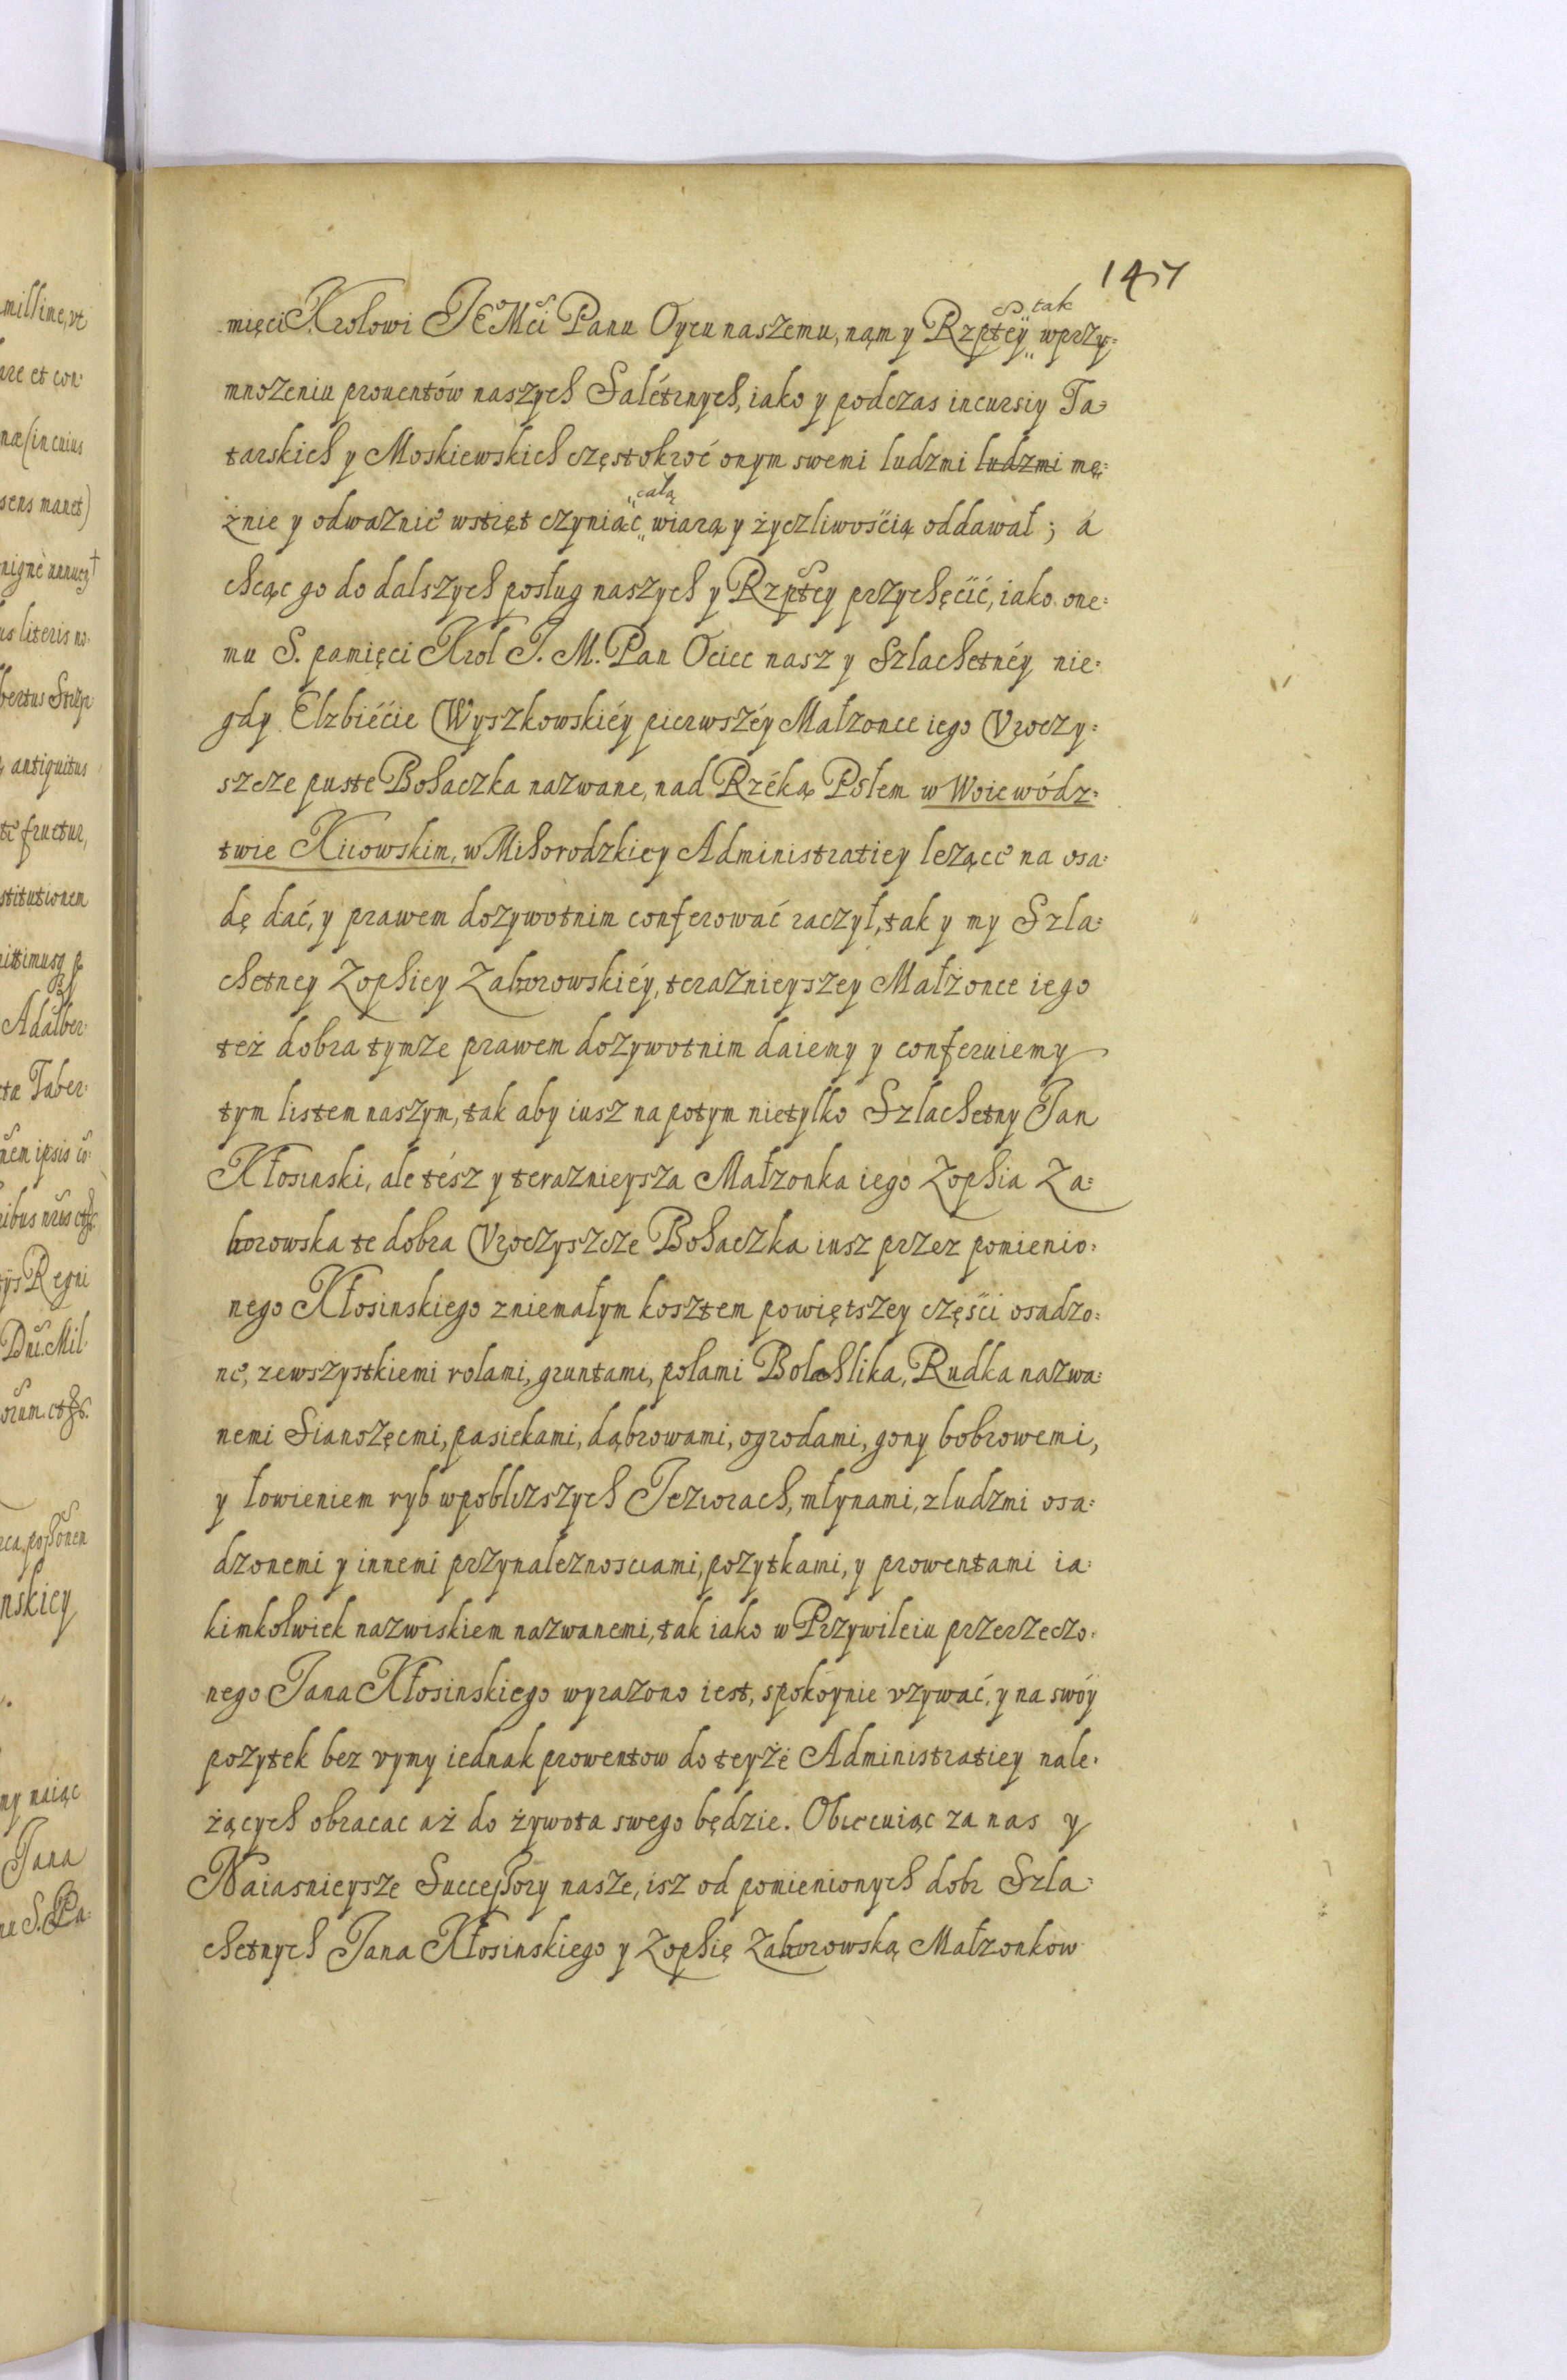 147
mięci Krolowi JeoMsci Panu Oycu naszemu, nąm y Rzptey „tak wprzy=
mnozeniu prouentów naszych Salétrnych, iako y podczas incursiy Ta=
tarskich y Moskiewskich częstokroć onym swemi ludzmi ludzmi mę=
żnie y odwaznie wstręt czyniąc „całą wiarą y życzliwością oddawał; a
chcąc go do dalszych posług naszych y Rzptey przychęcić, iako one=
mu S. pamięci Krol J. M. Pan Ociec nasz y Szlachetnéy nie=
gdy Elzbiécie Wyszkowskiéy pierwszéy Małzonce iego Vroczy=
szcze puste Bohaczka nazwane, nad Rzéką Psłem w Woiewódz=
twie Kiiowskim, w Mihorodzkiey Administratiey lezące na osa=
dę dać, y prawem dozywotnim conferować raczył, tak y my Szla=
chetney Zophiey Zaborowskiéy, teraznieyszey Małżonce iego
też dobra tymze prawem dozywotnim daiemy y conferuiemy
tym listem naszym, tak aby iusz na potym nietylko Szlachetny Jan
Kłosinski, ale tész y teraznieysza Małzonka iego Zophia Za=
borowska te dobra Vroczyszcze Bohaczka iusz przez pomienio=
nego Kłosinskiego zniemałym kosztem powiętszey części osadzo=
ne, zewszystkiemi rolami, gruntami, polami Bolahlika, Rudka nazwa=
nemi Sianozęcmi, pasiekami, dąbrowami, ogrodami, gony bobrowemi,
y łowieniem ryb wpoblizszych Jeziorach, młynami, zludzmi osa=
dzonemi y innemi przynaleznosciami, pozytkami, y prowentami ia=
kimkolwiek nazwiskiem nazwanemi, tak iako w Przywileiu przerzeczo=
nego Jana Kłosinskiego wyrazono iest, spokoynie vzywać, y na swóy
pozytek bez vymy iednak prowentow do teyże Administratiey nale=
żących obracac aż do żywota swego będzie. Obiecuiąc za nas y
Naiasnieysze Successory nasze, isz od pomienionych dobr Szla=
chetnych Jana Kłosinskiego y Zophię Zaborowską Małzonkow